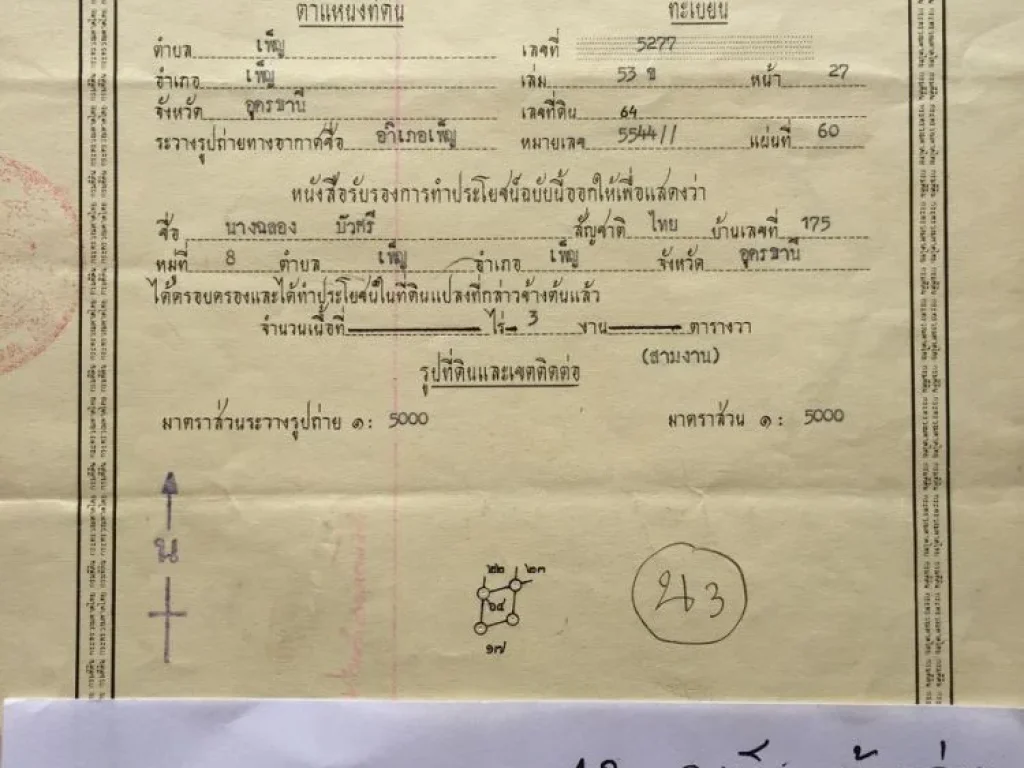 ตำแหน่งที่ดิน ทะเบียน
ตำบล เพ็ญ เลขที่ 5277
อำเภอ เพ็ญ เล่ม 53 ข หน้า 27
จังหวัด อุดรธานี เลขที่ดิน 64
ระวางรูปถ่ายทางอากาศชื่อ อำเภอเพ็ญ หมายเลข 5544 // แผ่นที่ 60
หนังสือรับรองการทำประโยชน์ฉบับนี้ออกให้เพื่อแสดงว่า
ชื่อ นางฉลอง บัวศรี สัญชาติ ไทย บ้านเลขที่ 175
หมู่ที่ 8 ตำบล เพ็ญ อำเภอ เพ็ญ จังหวัด อุดรธานี
ได้ครอบครองและได้ทำประโยชน์ในที่ดินแปลงที่กล่าวข้างต้นแล้ว
จำนวนเนื้อที่ ไร่ 3 งาน ตารางวา
(สามงาน)
รูปที่ดินและเขตติดต่อ
มาตราส่วนระวางรูปถ่าย ๑ : 5000 มาตราส่วน ๑ : 5000
น
๒๒ ๒๓
๖๔
๑๗
น 3